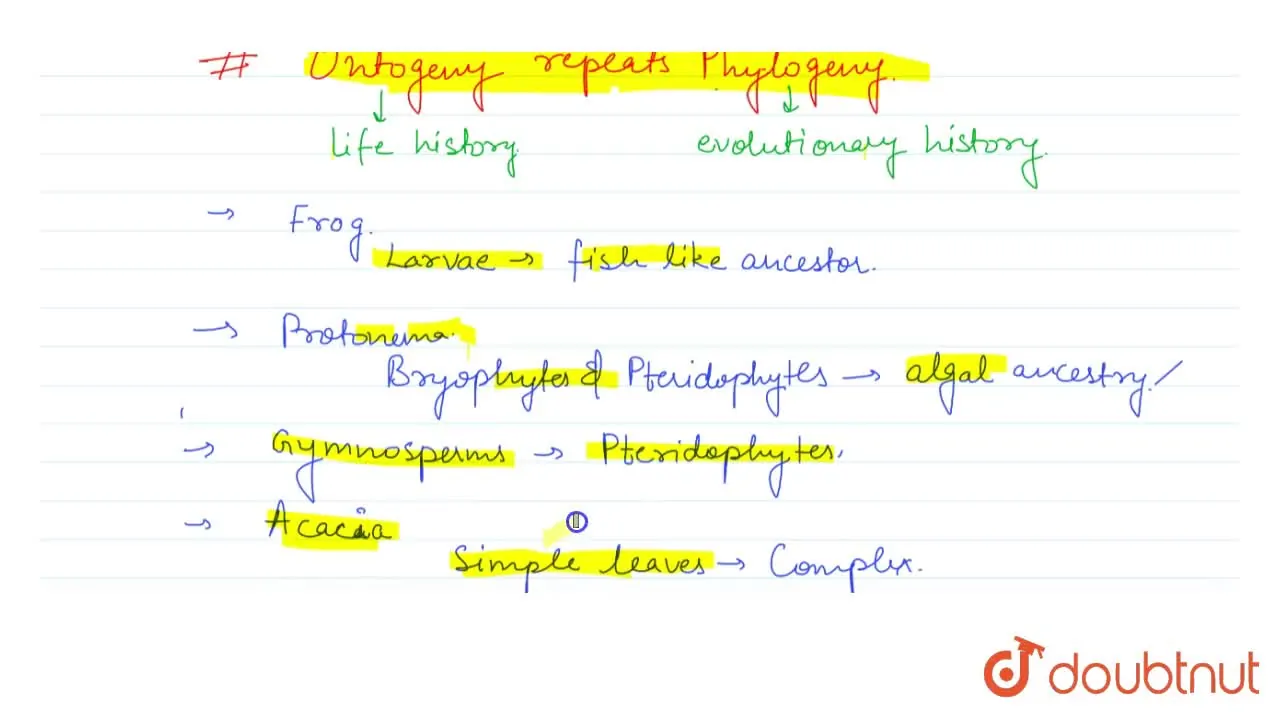 # Ontogeny repeats Phylogeny.
↓ ↓
life history. evolutionary history.
→ Frog.
Larvae → fish like ancestor.
→ Protonema.
Bryophytes & Pteridophytes → algal ancestry.
→ Gymnosperms → Pteridophytes,
→ Acacia
Simple leaves → Complex.
doubtnut